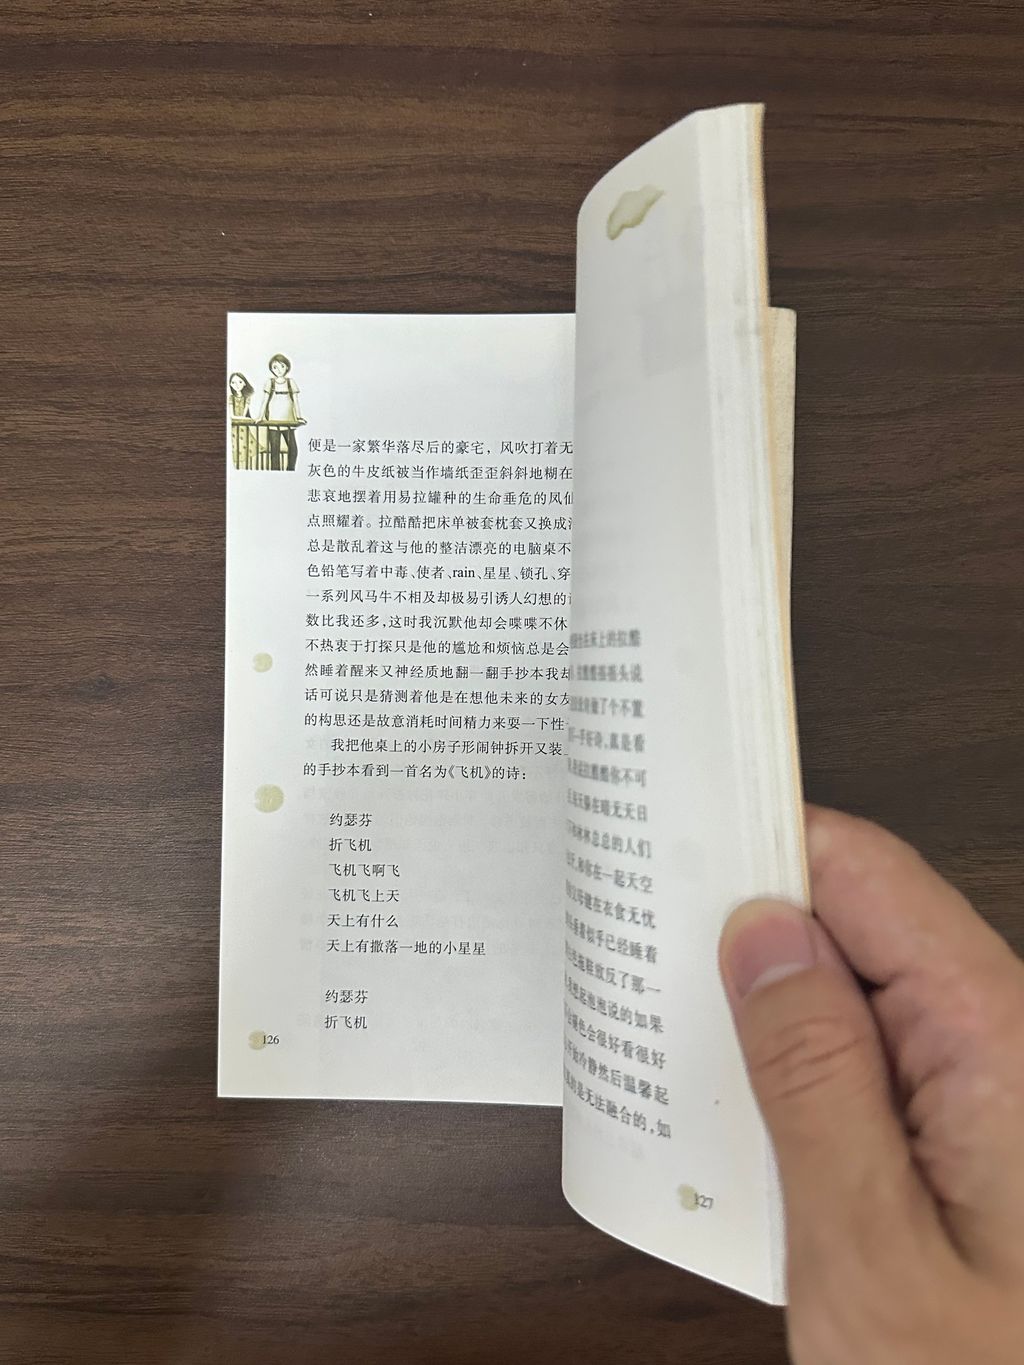 便是一家繁华落尽后的豪宅，风吹打着无
灰色的牛皮纸被当作墙纸歪歪斜斜地糊在
悲哀地摆着用易拉罐种的生命垂危的凤仙
点照耀着。拉酷酷把床单被套枕套又换成
总是散乱着这与他的整洁漂亮的电脑桌不
色铅笔写着中毒、使者、rain、星星、锁孔、穿
一系列风马牛不相及却极易引诱人幻想的
数比我还多，这时我沉默他却会喋喋不休
不热衷于打探只是他的尴尬和烦恼总是会
然睡着醒来又神经质地翻一翻手抄本我却
话可说只是猜测着他是在想他未来的女友
的构思还是故意消耗时间精力来耍一下性
我把他桌上的小房子形闹钟拆开又装
的手抄本看到一首名为《飞机》的诗：
约瑟芬
折飞机
飞机飞啊飞
飞机飞上天
天上有什么
天上有撒落一地的小星星
约瑟芬
折飞机
126
在床上的拉酷
摇摇头说
做了个不置
一手好诗，真是看
拉酷酷你不可
天躲在暗无天日
林林总总的人们
和你在一起天空
健在衣食无忧
着似乎已经睡着
拖鞋放反了那一
想起泡泡说的如果
色会很好看很好
开始冷静然后温馨起
的是无法融合的，如
127